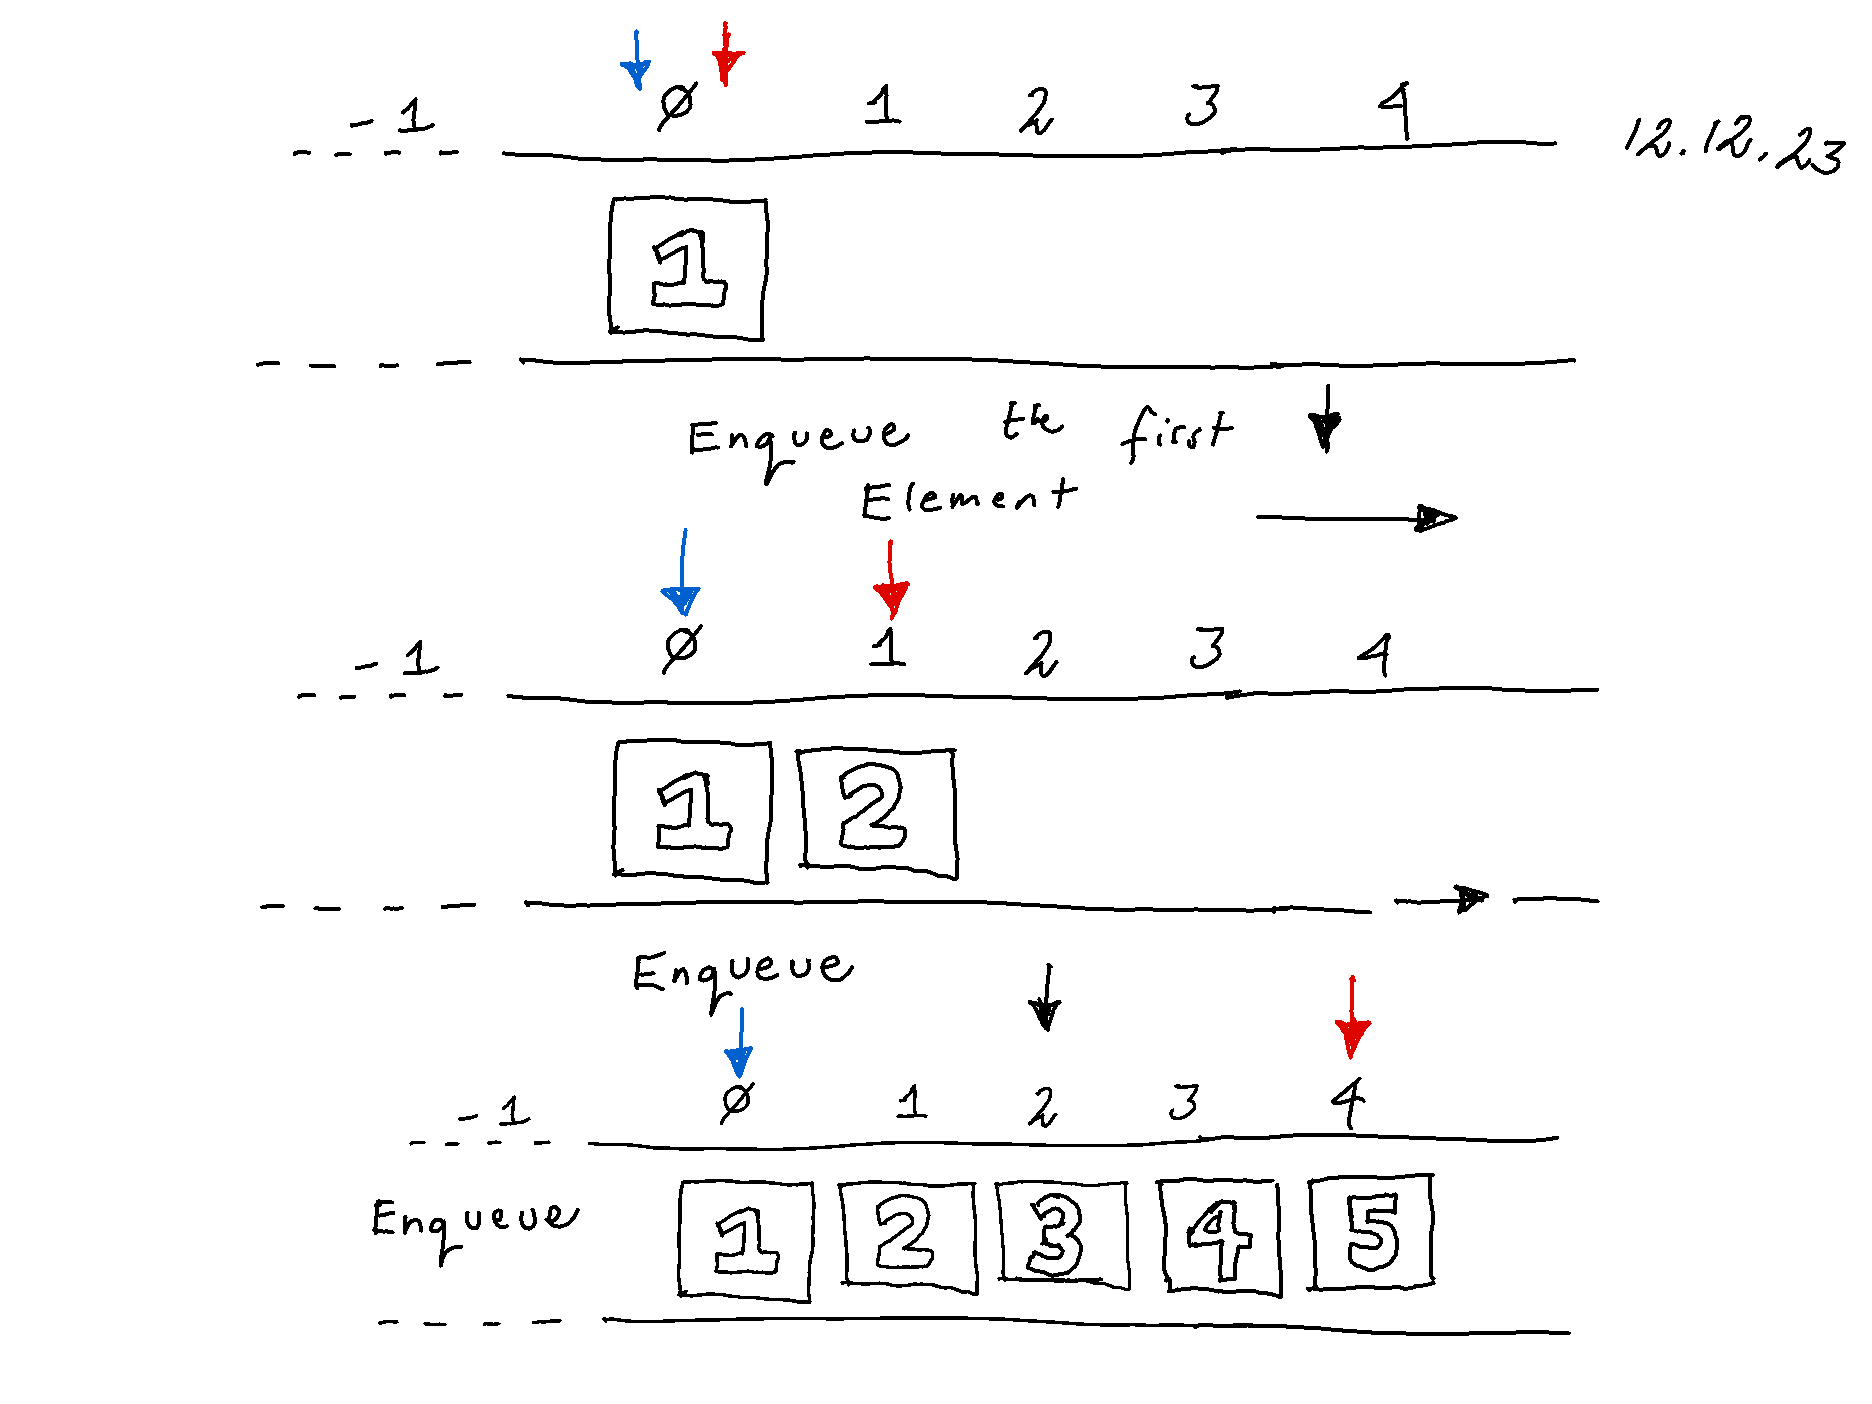 -1 Ø 1 2 3 4
12.12.23
1
Enqueue the first
Element
-1 Ø 1 2 3 4
1 2
Enqueue
-1 Ø 1 2 3 4
Enqueue 1 2 3 4 5